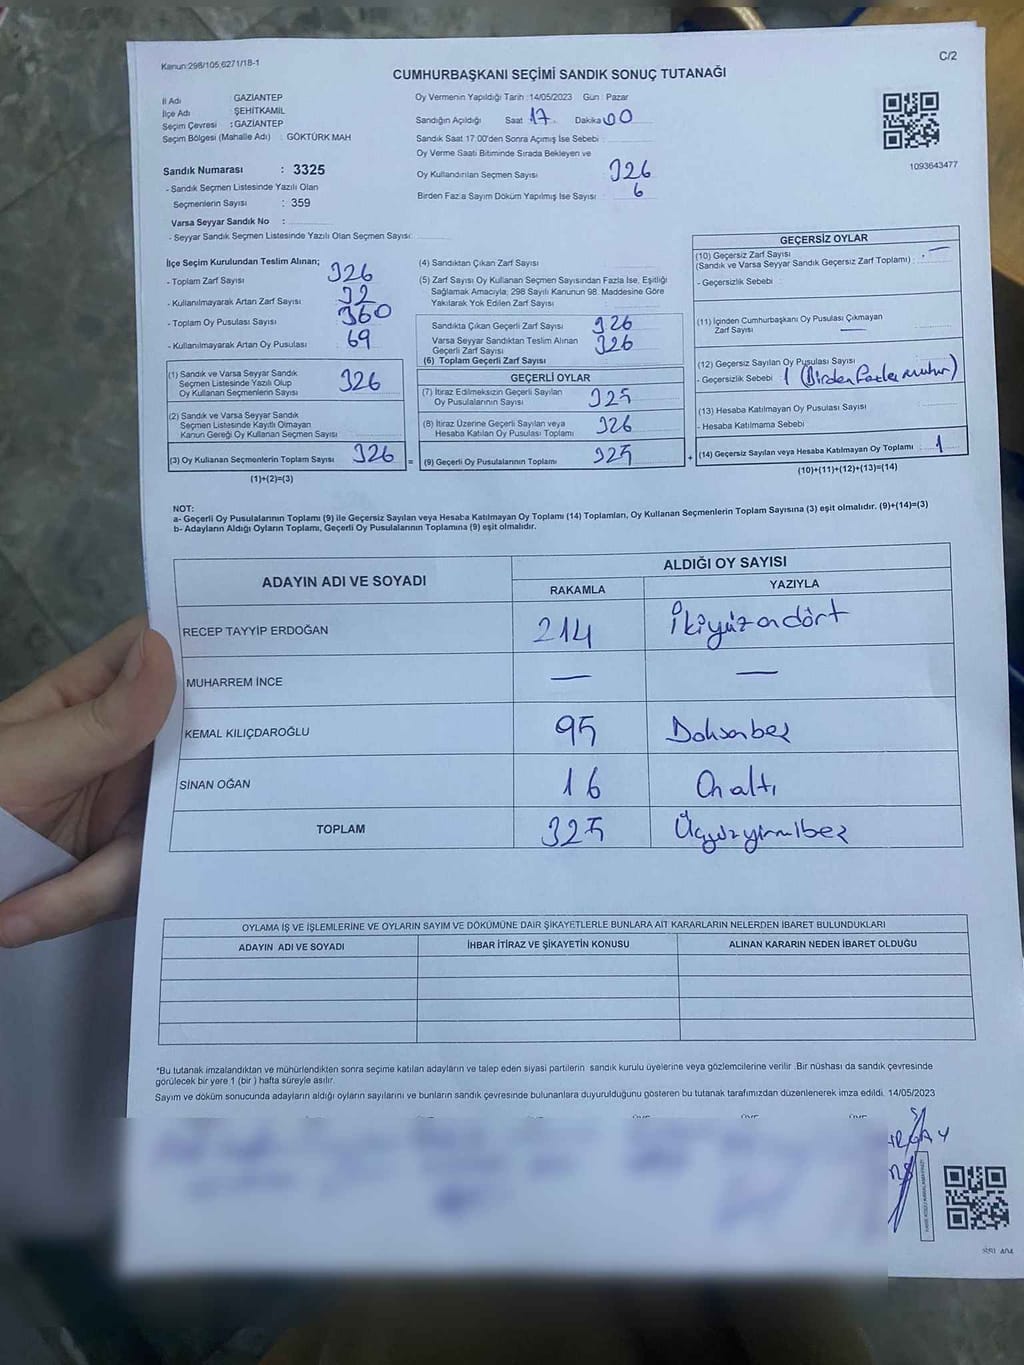 Kanun:298/105,6271/18-1
C/2
CUMHURBAŞKANI SEÇİMİ SANDIK SONUÇ TUTANAĞI
İl Adı : GAZİANTEP
İlçe Adı : ŞEHİTKAMİL
Seçim Çevresi : GAZİANTEP
Seçim Bölgesi (Mahalle Adı) : GÖKTÜRK MAH
Sandık Numarası : 3325
- Sandık Seçmen Listesinde Yazılı Olan
Seçmenlerin Sayısı : 359
Varsa Seyyar Sandık No :
- Seyyar Sandık Seçmen Listesinde Yazılı Olan Seçmen Sayısı:
Oy Vermenin Yapıldığı Tarih :14/05/2023 Gün : Pazar
Sandığın Açıldığı Saat 17 Dakika 00
Sandık Saat 17:00'den Sonra Açımış İse Sebebi :
Oy Verme Saati Bitiminde Sırada Bekleyen ve
Oy Kullandırılan Seçmen Sayısı : 326
Birden Fazla Sayım Döküm Yapılmış İse Sayısı : 6
1093643477
İlçe Seçim Kurulundan Teslim Alınan;
- Toplam Zarf Sayısı 326
- Kullanılmayarak Artan Zarf Sayısı 32
- Toplam Oy Pusulası Sayısı 360
- Kullanılmayarak Artan Oy Pusulası 69
(1) Sandık ve Varsa Seyyar Sandık
Seçmen Listesinde Yazılı Olup
Oy Kullanan Seçmenlerin Sayısı 326
(2) Sandık ve Varsa Seyyar Sandık
Seçmen Listesinde Kayıtlı Olmayan
Kanun Gereği Oy Kullanan Seçmen Sayısı
(3) Oy Kullanan Seçmenlerin Toplam Sayısı 326 =
(1)+(2)=(3)
(4) Sandıktan Çıkan Zarf Sayısı :
(5) Zarf Sayısı Oy Kullanan Seçmen Sayısından Fazla İse, Eşitliği
Sağlamak Amacıyla; 298 Sayılı Kanunun 98. Maddesine Göre
Yakılarak Yok Edilen Zarf Sayısı :
Sandıkta Çıkan Geçerli Zarf Sayısı 326
Varsa Seyyar Sandıktan Teslim Alınan
Geçerli Zarf Sayısı 326
(6) Toplam Geçerli Zarf Sayısı
GEÇERLİ OYLAR
(7) İtiraz Edilmeksizin Geçerli Sayılan
Oy Pusulalarının Sayısı 325
(8) İtiraz Üzerine Geçerli Sayılan veya
Hesaba Katılan Oy Pusulası Toplamı 326
(9) Geçerli Oy Pusulalarının Toplamı 325 +
GEÇERSİZ OYLAR
(10) Geçersiz Zarf Sayısı
(Sandık ve Varsa Seyyar Sandık Geçersiz Zarf Toplamı) : —
- Geçersizlik Sebebi :
(11) İçinden Cumhurbaşkanı Oy Pusulası Çıkmayan
Zarf Sayısı —
(12) Geçersiz Sayılan Oy Pusulası Sayısı
- Geçersizlik Sebebi 1 (Birden Fazla mühür)
(13) Hesaba Katılmayan Oy Pusulası Sayısı
- Hesaba Katılmama Sebebi
(14) Geçersiz Sayılan veya Hesaba Katılmayan Oy Toplamı : 1
(10)+(11)+(12)+(13)=(14)
NOT:
a- Geçerli Oy Pusulalarının Toplamı (9) ile Geçersiz Sayılan veya Hesaba Katılmayan Oy Toplamı (14) Toplamları, Oy Kullanan Seçmenlerin Toplam Sayısına (3) eşit olmalıdır. (9)+(14)=(3)
b- Adayların Aldığı Oyların Toplamı, Geçerli Oy Pusulalarının Toplamına (9) eşit olmalıdır.
ADAYIN ADI VE SOYADI ALDIĞI OY SAYISI
RAKAMLA YAZIYLA
RECEP TAYYİP ERDOĞAN 214 İkiyüzondört
MUHARREM İNCE — —
KEMAL KILIÇDAROĞLU 95 Doksanbeş
SİNAN OĞAN 16 Onaltı
TOPLAM 325 Üçyüzyirmibeş
OYLAMA İŞ VE İŞLEMLERİNE VE OYLARIN SAYIM VE DÖKÜMÜNE DAİR ŞİKAYETLERLE BUNLARA AİT KARARLARIN NELERDEN İBARET BULUNDUKLARI
ADAYIN ADI VE SOYADI İHBAR İTİRAZ VE ŞİKAYETİN KONUSU ALINAN KARARIN NEDEN İBARET OLDUĞU
*Bu tutanak imzalandıktan ve mühürlendikten sonra seçime katılan adayların ve talep eden siyasi partilerin sandık kurulu üyelerine veya gözlemcilerine verilir .Bir nüshası da sandık çevresinde
görülecek bir yere 1 (bir ) hafta süreyle asılır.
Sayım ve döküm sonucunda adayların aldığı oyların sayılarını ve bunların sandık çevresinde bulunanlara duyurulduğunu gösteren bu tutanak tarafımızdan düzenlenerek imza edildi. 14/05/2023